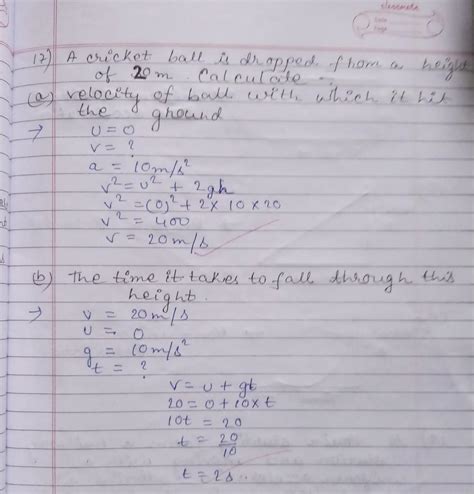 classmate
Date
Page
17) A cricket ball is dropped from a height
of 20m. Calculate
(a) velocity of ball with which it hit
the ground
→ U = 0
V = ?
a = 10m/s²
v² = u² + 2gh
v² = (0)² + 2 × 10 × 20
v² = 400
v = 20m/s
(b) The time it takes to fall through this
height.
→ v = 20m/s
u = 0
g = 10m/s²
t = ?
v = u + gt
20 = 0 + 10 × t
10t = 20
t = 20
10
t = 2s.